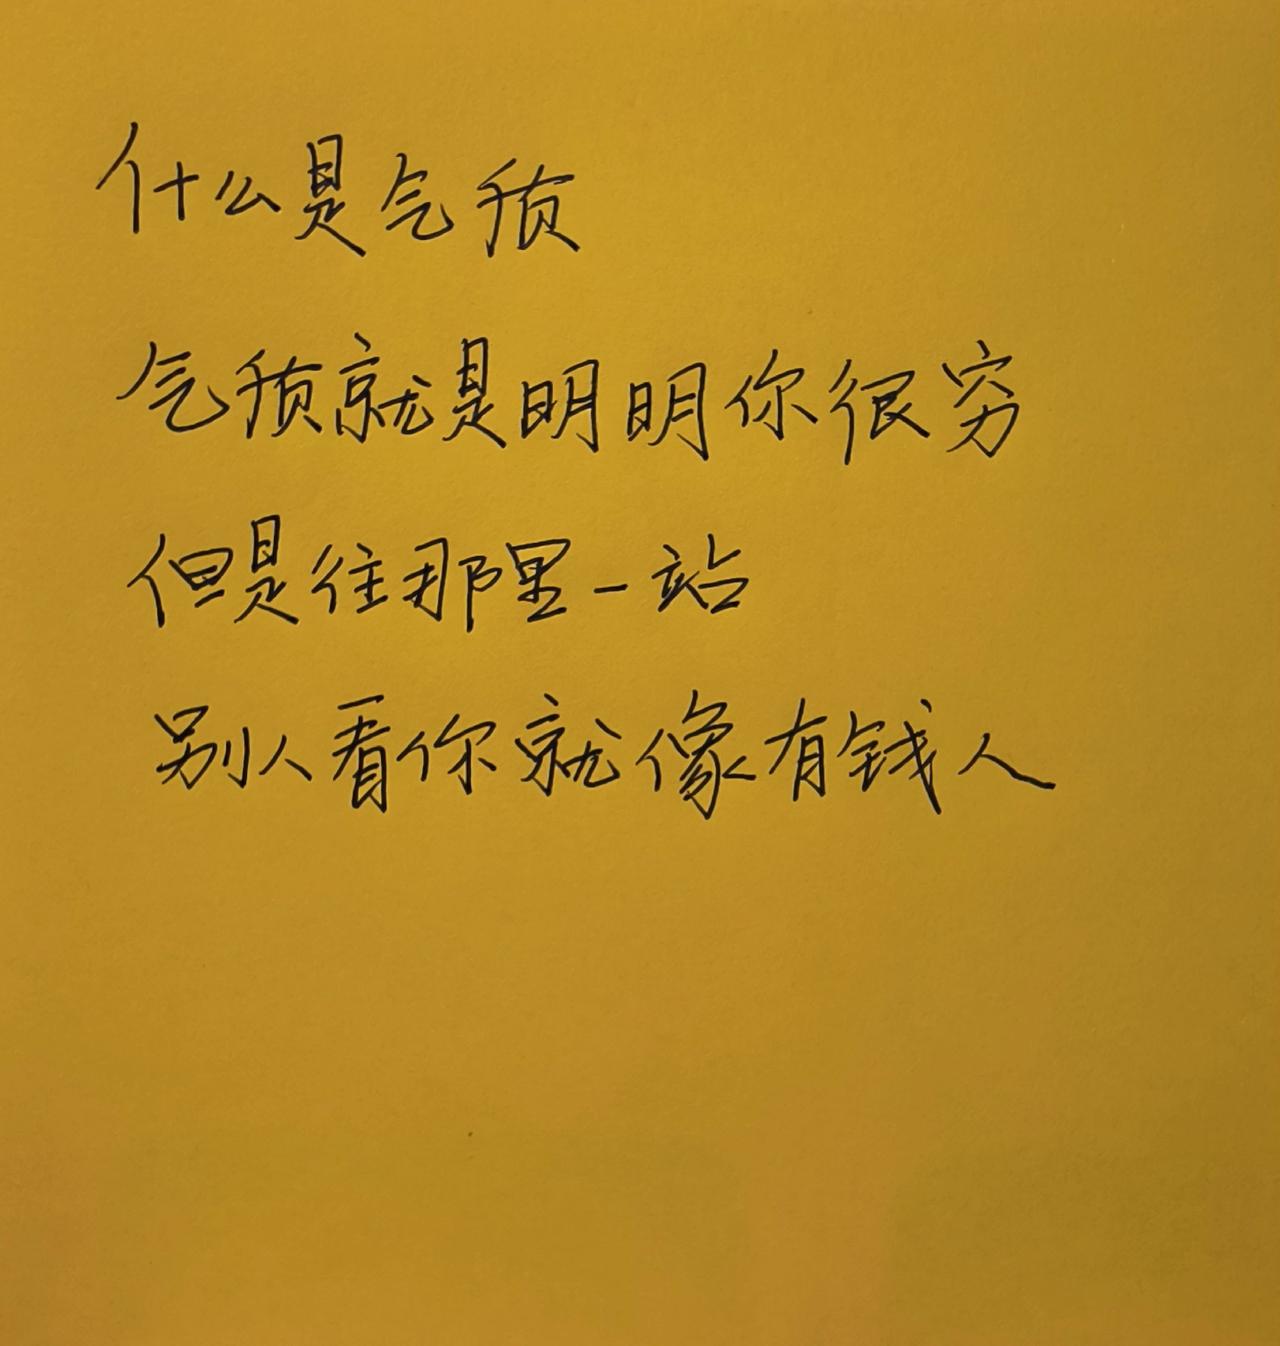 什么是气质
气质就是明明你很穷
但是往那里一站
别人看你就像有钱人